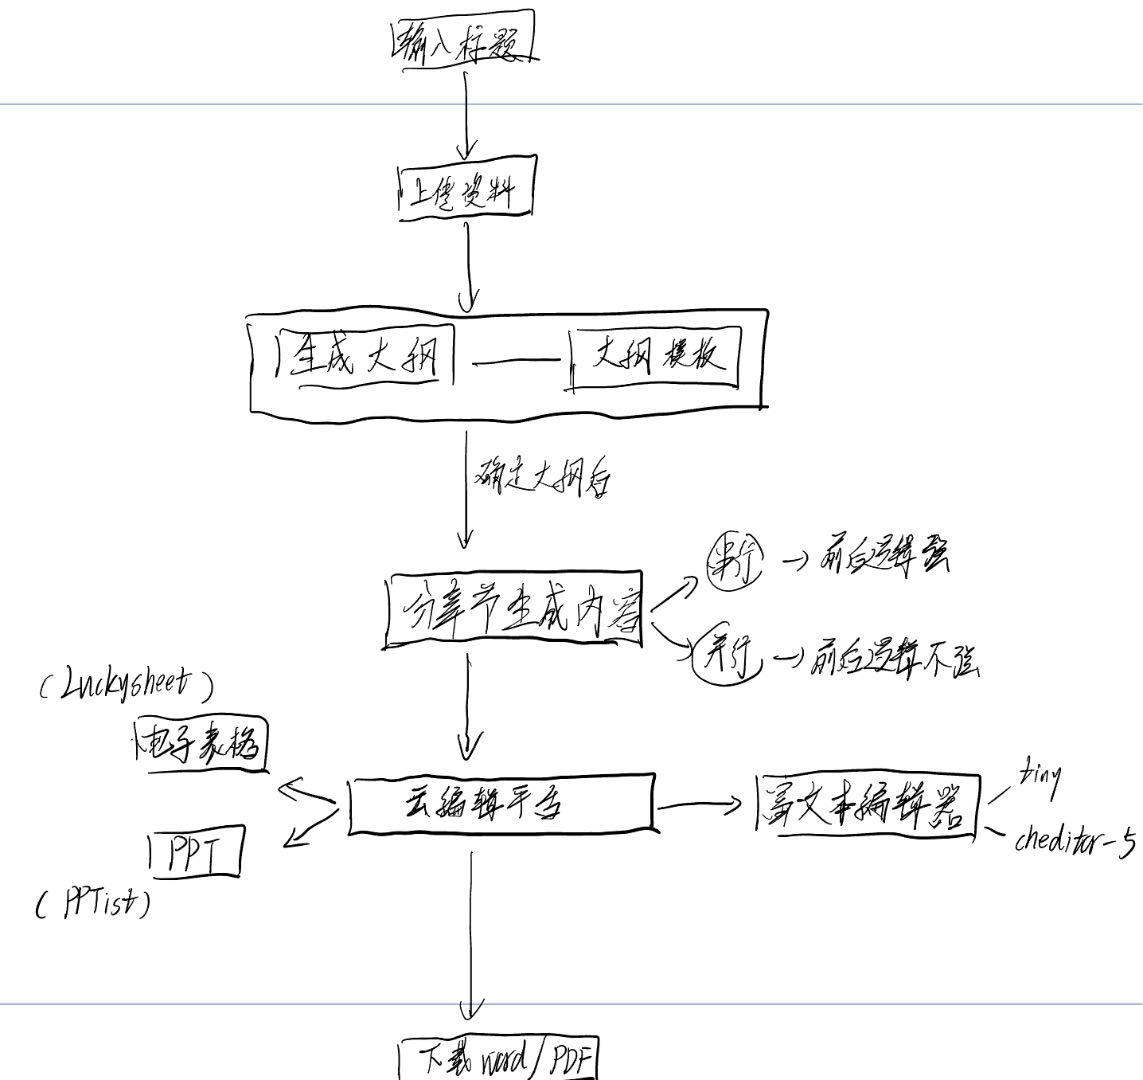 输入标题
上传资料
生成大纲
大纲模板
确定大纲后
分章节生成内容
串行 → 前后逻辑强
并行 → 前后逻辑不强
(Luckysheet)
电子表格
云编辑平台
富文本编辑器
tiny
ckeditor-5
PPT
(PPTist)
下载word/PDF